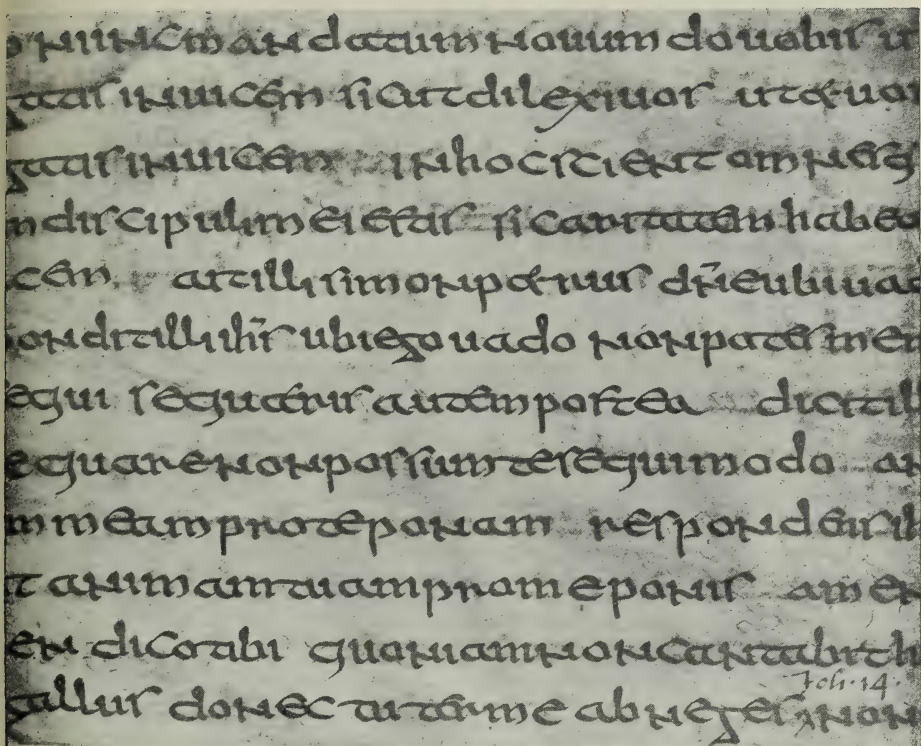 nunc mandatum nouum do uobis ut
gatis inuicem sicut dilexi uos ut et uos
gatis inuicem in hoc scient omnes q
m discipuli mei estis si caritatem habea
cem ait illi simon petrus dne ubi ua
ondit illi ihs ubi ego uado non potes me
equi sequeris autem postea dicit il
equare non possum te sequi modo an
m meam pro te ponam respondens ih
t animam tuam pro me ponis amen
en dico tibi quoniam non cantabit h
Joh. 14.
gallus donec tu ter me abneges non